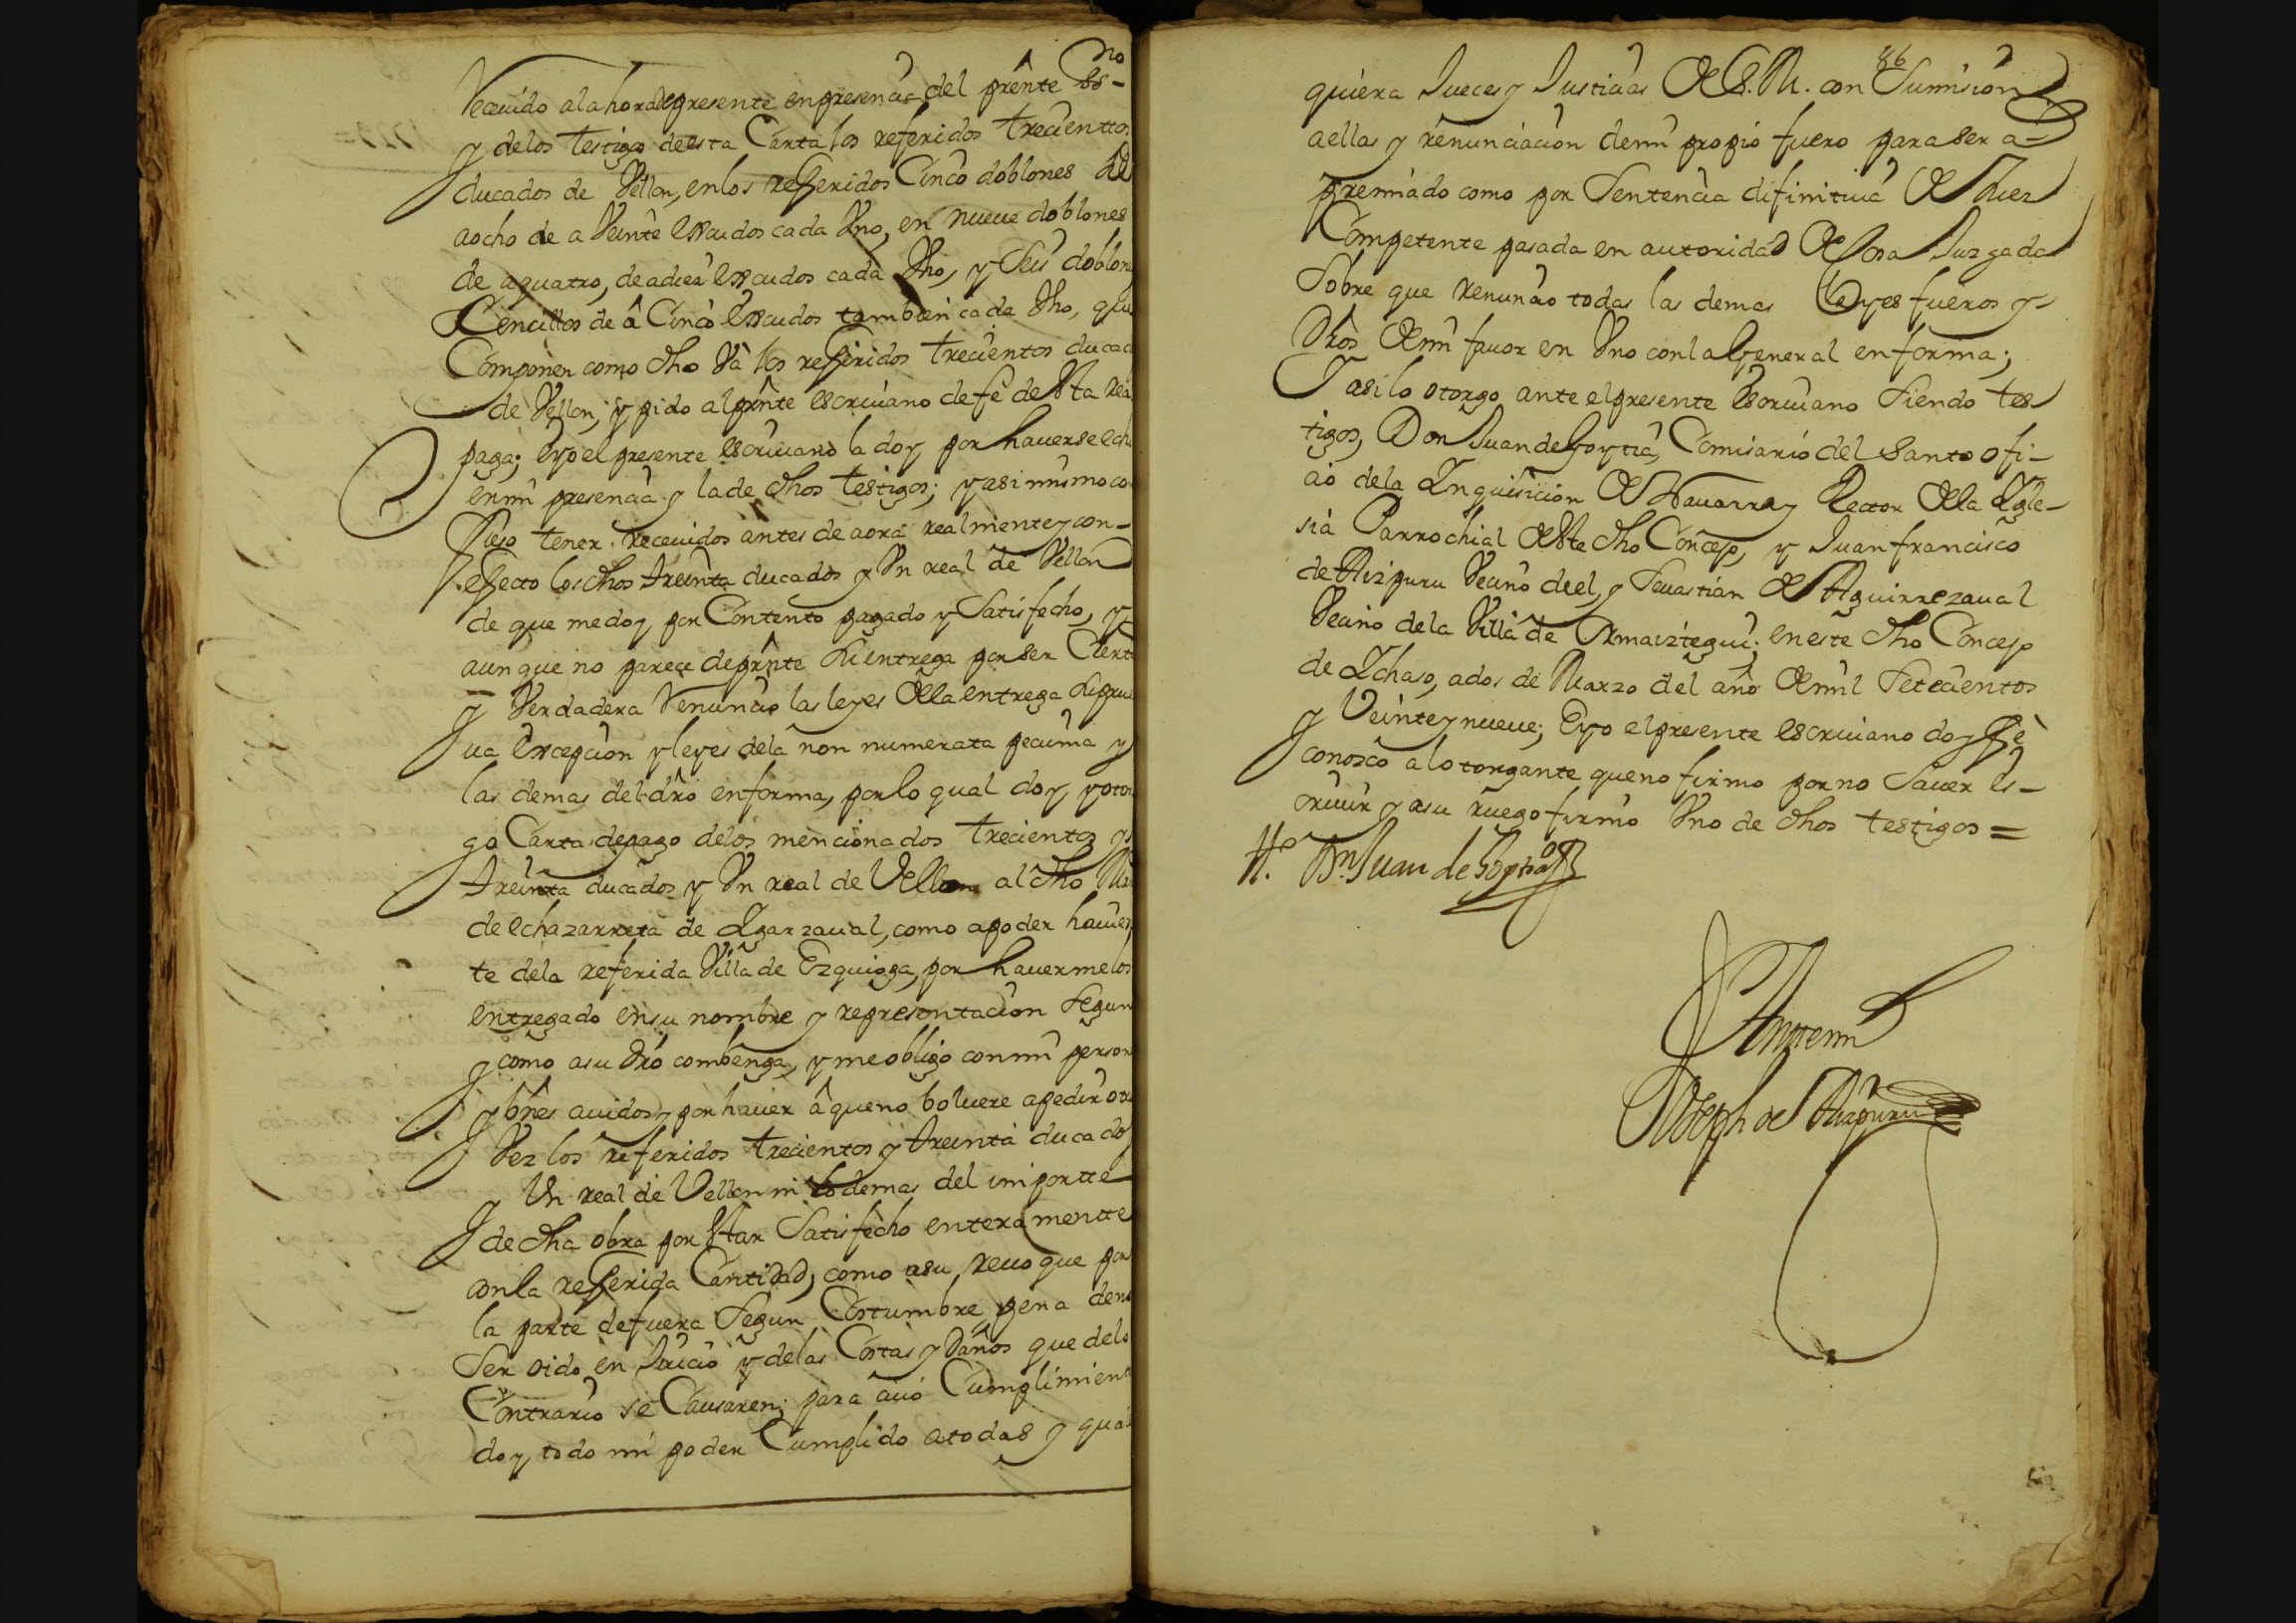 Receuido alahora depresente enpresencia del presnte Ssno
y delos testigos deesta Carta los referidos trecienttos
ducados de Vellon, enlos refferidos Cinco doblones de
aocho de a Veinte Esscudos cada Vno, en nueue doblones
de aquatro, deadiez esscudos cada Vno, y Seis doblon
Cencillos de â Cinco Esscudos tambien cada Vno, que
Componen como dho Va los refferidos trecientos ducad
de Vellon; y pido alprnte escriuano defe de Sta Real
paga; Eyo el presente escriuano la doy por hauerse echo
enmi presencia y lade dhos testigos; y asi mismo con
fieso tener receuidos antes de aora realmente y con-
effecto los dhos treinta ducados y Vn real de Vellon
de que medoy por Contento pagado y Satisfecho, y
aunque no pareçe deprnte Su entrega por ser Ciert
y Verdadera Renuncio las leyes de la entrega Suprue
ua Excepcion y leyes dela non numerata pecunia y
las demas del dro enforma, porlo qual doy, y otor
go Carta depago delos mencionados trecientos y
treinta ducados y Vn real de Vellon al dho
de echazarreta de Ygarzaual, como apoder hauien
te dela referida Villa de Ezquioga, por hauermelos
entregado ensu nombre y representacion Segun
y como asu dro combenga, y meobligo conmi person
y bnes auidos y por hauer â queno boluere apedir otra
Vez los referidos trecientos y treinta ducados
y Vn real de Vellon ni lo demas del importte
de dha obra por Star Satisfecho enteramentte
conla refferida Cantidad, como asu reuoque por
la parte defuera Segun Costumbre, pena deno
Ser oido en Juicio y delas Costas y Daños que delo
Contrario se Causaren; para cuio Cumplimient
doy todo mi poder Cumplido atodas y qual
86
quiera Jueces y Justicias de S. M. con Sumision
aellas y renunciacion demi propio fuero para ser a-
premiado como por Sentencia difinitiua de Juez
Competente pasada en autoridad de Cosa Juzgada
Sobre que renuncio todas las demas leyes fueros y
Dhos demi fauor en Vno conla General enforma;
Y asi lo otorgo ante elpresente Escriuano Siendo tes
tigos, Don Juan de Goytia, Comisario del Santo ofi-
cio dela Ynquisicion de Nauarra y Rector dela Ygle-
sia Parrochial deste dho Concejo, y Juan francisco
de Aizpuru Vecino deel, y Seuastian de Aguirrezaual
Vecino dela Villa de Ormaiztegui; en este dho Concejo
de Ychaso, ados de Marzo del año de mil Setecientos
y Veinte y nueue; Eyo elpresente escriuano doy fe
conozco alotorgante queno firmo por no Sauer es-
criuir y asu ruego firmo Vno de dhos testigos =
Tt.o Dn. Juan de Goytia
Antemi
Joseph de Aizpuru